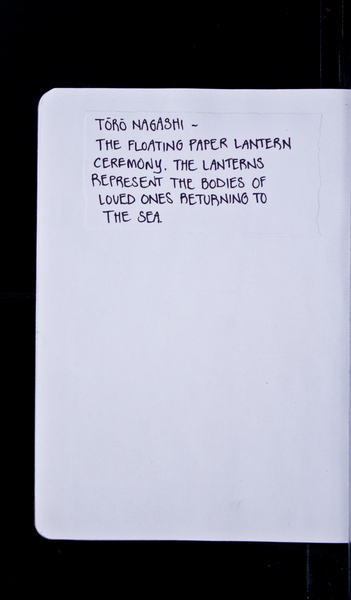 TŌRŌ NAGASHI ~
THE FLOATING PAPER LANTERN
CEREMONY. THE LANTERNS
REPRESENT THE BODIES OF
LOVED ONES RETURNING TO
THE SEA.